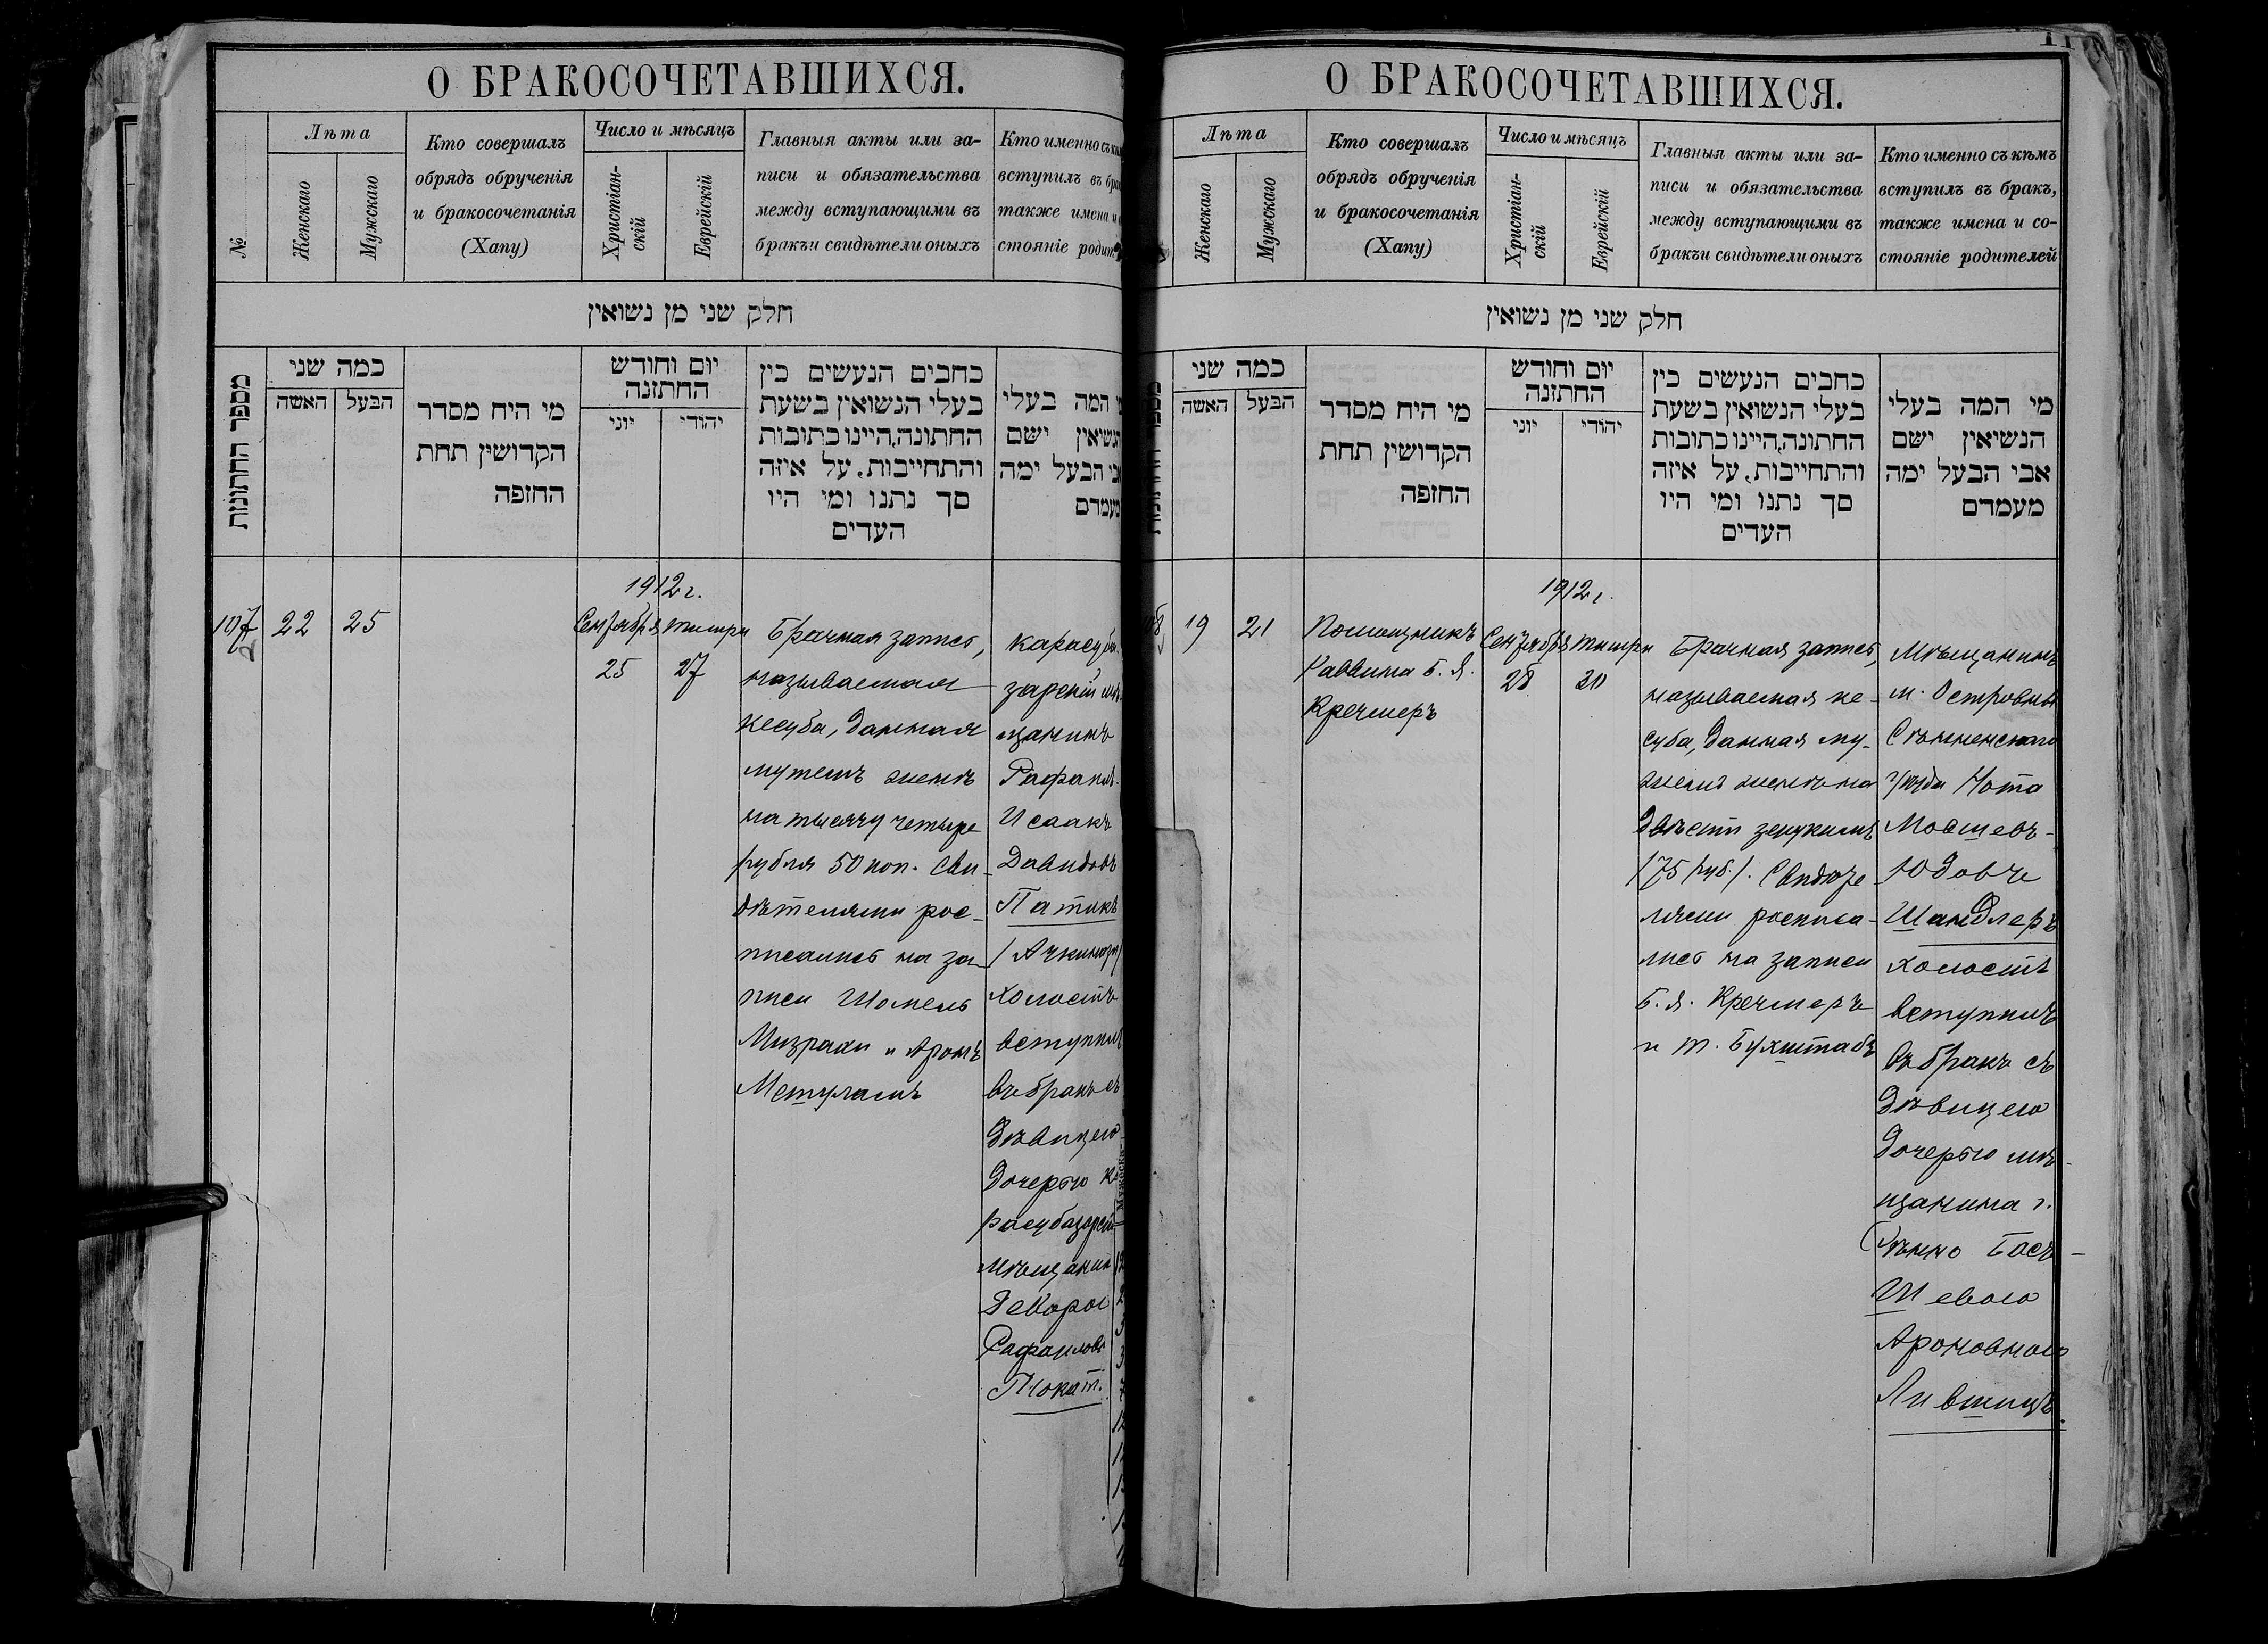 О БРАКОСОЧЕТАВШИХСЯ.
№
Лѣта
Женскаго
Мужскаго
Кто совершалъ
обрядъ обрученія
и бракосочетанія
(Хапу)
Число и мѣсяцъ
Христіан-
скій
Еврейскій
Главныя акты или за-
писи и обязательства
между вступающими въ
бракъ и свидѣтели оныхъ
Кто именно съ
вступилъ въ
также имена и
стояніе
חלק שני מן נשואין
מספר החתונות
כמה שני
האשה
הבעל
מי היח מסדר
הקדושין תחת
החופה
יום וחודש
החתונה
יוני
יהודי
כתבים הנעשים בין
בעלי הנשואין בשעת
החתונה, היינו כתובות
והתחייבות, על איזה
סך נתנו ומי היו
העדים
המה בעלי
הנשיאין ישם
אבי הבעל ימה
מעמדם
107
22
25
1912 г.
Сентября
25
Тишри
27
Брачная запись,
называемая
кесуба, данная
мужемъ женѣ
на тысячу четыре
рубля 50 коп. Сви-
дѣтелями рос-
писались на за-
писи Шомель
Мизрахи и Аронъ
Мешуламъ
Карасуба-
зарскій мѣ-
щанинъ
Рафаилъ-
Исаакъ
Давидовъ
Патикъ
/Ачкинази/
холостъ
вступилъ
въ бракъ съ
дѣвицею
дочерью Ка
расубазарск
мѣщанин
Деворою
Рафаилов
Токат.
О БРАКОСОЧЕТАВШИХСЯ.
Лѣта
Женскаго
Мужскаго
Кто совершалъ
обрядъ обрученія
и бракосочетанія
(Хапу)
Число и мѣсяцъ
Христіан-
скій
Еврейскій
Главныя акты или за-
писи и обязательства
между вступающими въ
бракъ и свидѣтели оныхъ
Кто именно съ кѣмъ
вступилъ въ бракъ,
также имена и со-
стояніе родителей
חלק שני מן נשואין
כמה שני
האשה
הבעל
מי היח מסדר
הקדושין תחת
החופה
יום וחודש
החתונה
יוני
יהודי
כתבים הנעשים בין
בעלי הנשואין בשעת
החתונה, היינו כתובות
והתחייבות, על איזה
סך נתנו ומי היו
העדים
מי המה בעלי
הנשיאין ישם
אבי הבעל ימה
מעמדם
108
19
21
Помощникъ
Раввина Б. Я.
Кречмеръ
1912 г.
Сентября
28
Тишри
30
Брачная запись,
называемая ке-
суба, данная му-
жемъ женѣ на
двѣсти зекукимъ
/75 руб./. Свидѣте
лями росписа-
лись на записи
Б. Я. Кречмеръ
и т. Бухштабъ
Мѣщанинъ
м. Островны
Сѣнненскаго
уѣзда Нота
Мовшевъ-
Юдовъ
Шандлеръ
холостъ
вступилъ
въ бракъ съ
дѣвицею
дочерью мѣ-
щанина г.
Сѣнно Бася-
Шевою
Ароновною
Лившицъ.